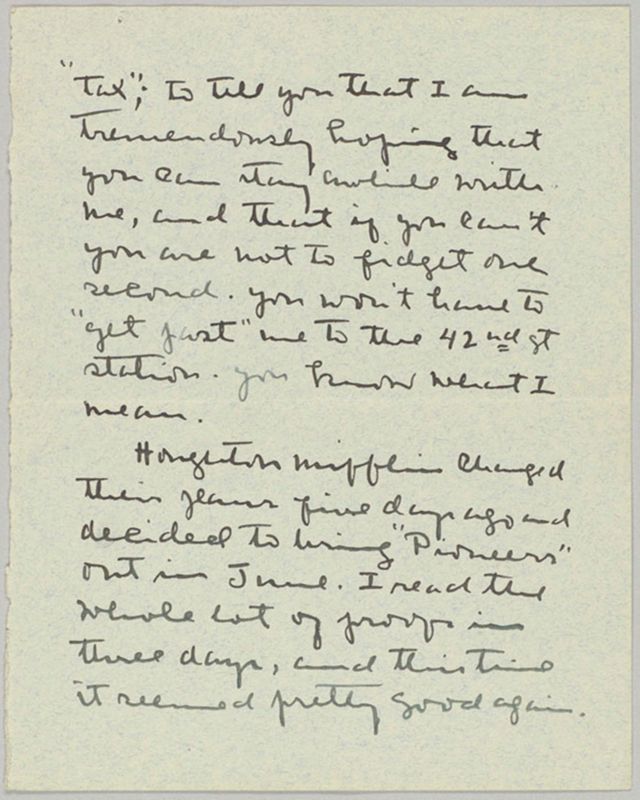 "tax"; to tell you that I am
tremendously hoping that
you can stay awhile with
me, and that if you can't
you are not to fidget one
second. you won't have to
"get past" me to the 42nd st
station. you know what I
mean.
Houghton Mifflin changed
their plans five days ago and
decided to bring "Pioneers"
out in June. I read the
whole lot of proofs in
three days, and this time
it seemed pretty good again.